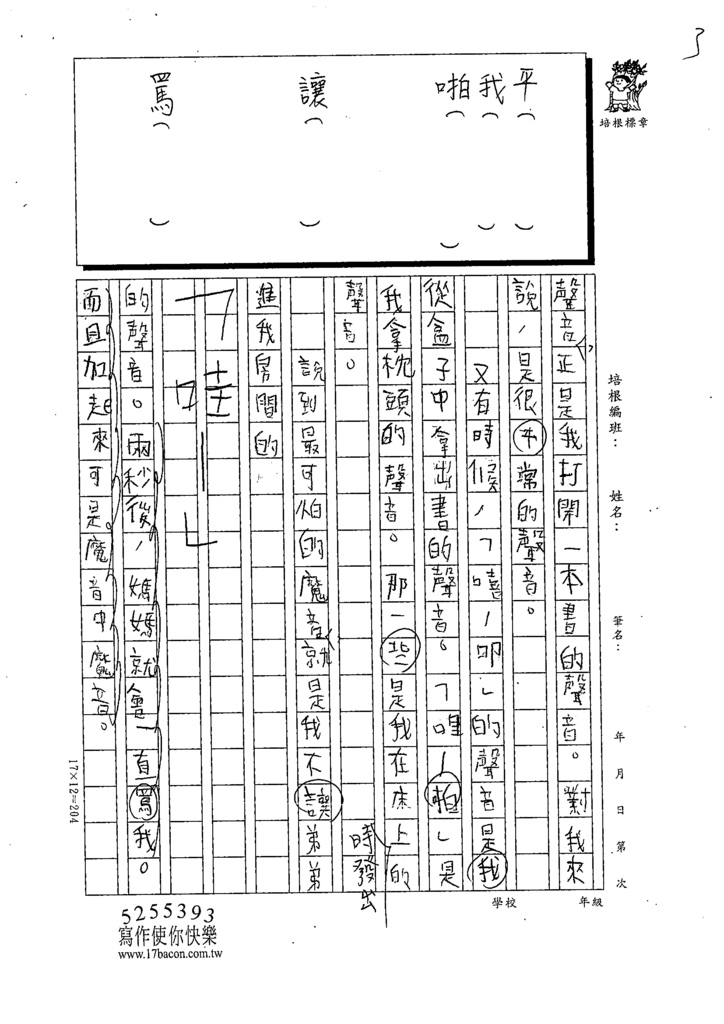 3
平（　）
我（　）
啪（　）
讓（　）
罵（　）
培根標章
培根編班：　姓名：　筆名：　年　月　日　第　次
學校　年級
聲音正是我打開一本書的聲音。對我來
說，是很平常的聲音。
又有時候，「嘻ㄧ叩」的聲音是我
從盒子中拿出書的聲音。「哩ㄧ啪」是
我拿枕頭的聲音。那一些是我在床上的
時發出
聲音。
說到最可怕的魔音就是我不讓弟弟
進我房間的
的聲音。兩秒後，媽媽就會一直罵我。
而且加起來可是魔音中魔音。
17×12=204
5255393
寫作使你快樂
www.17bacon.com.tw